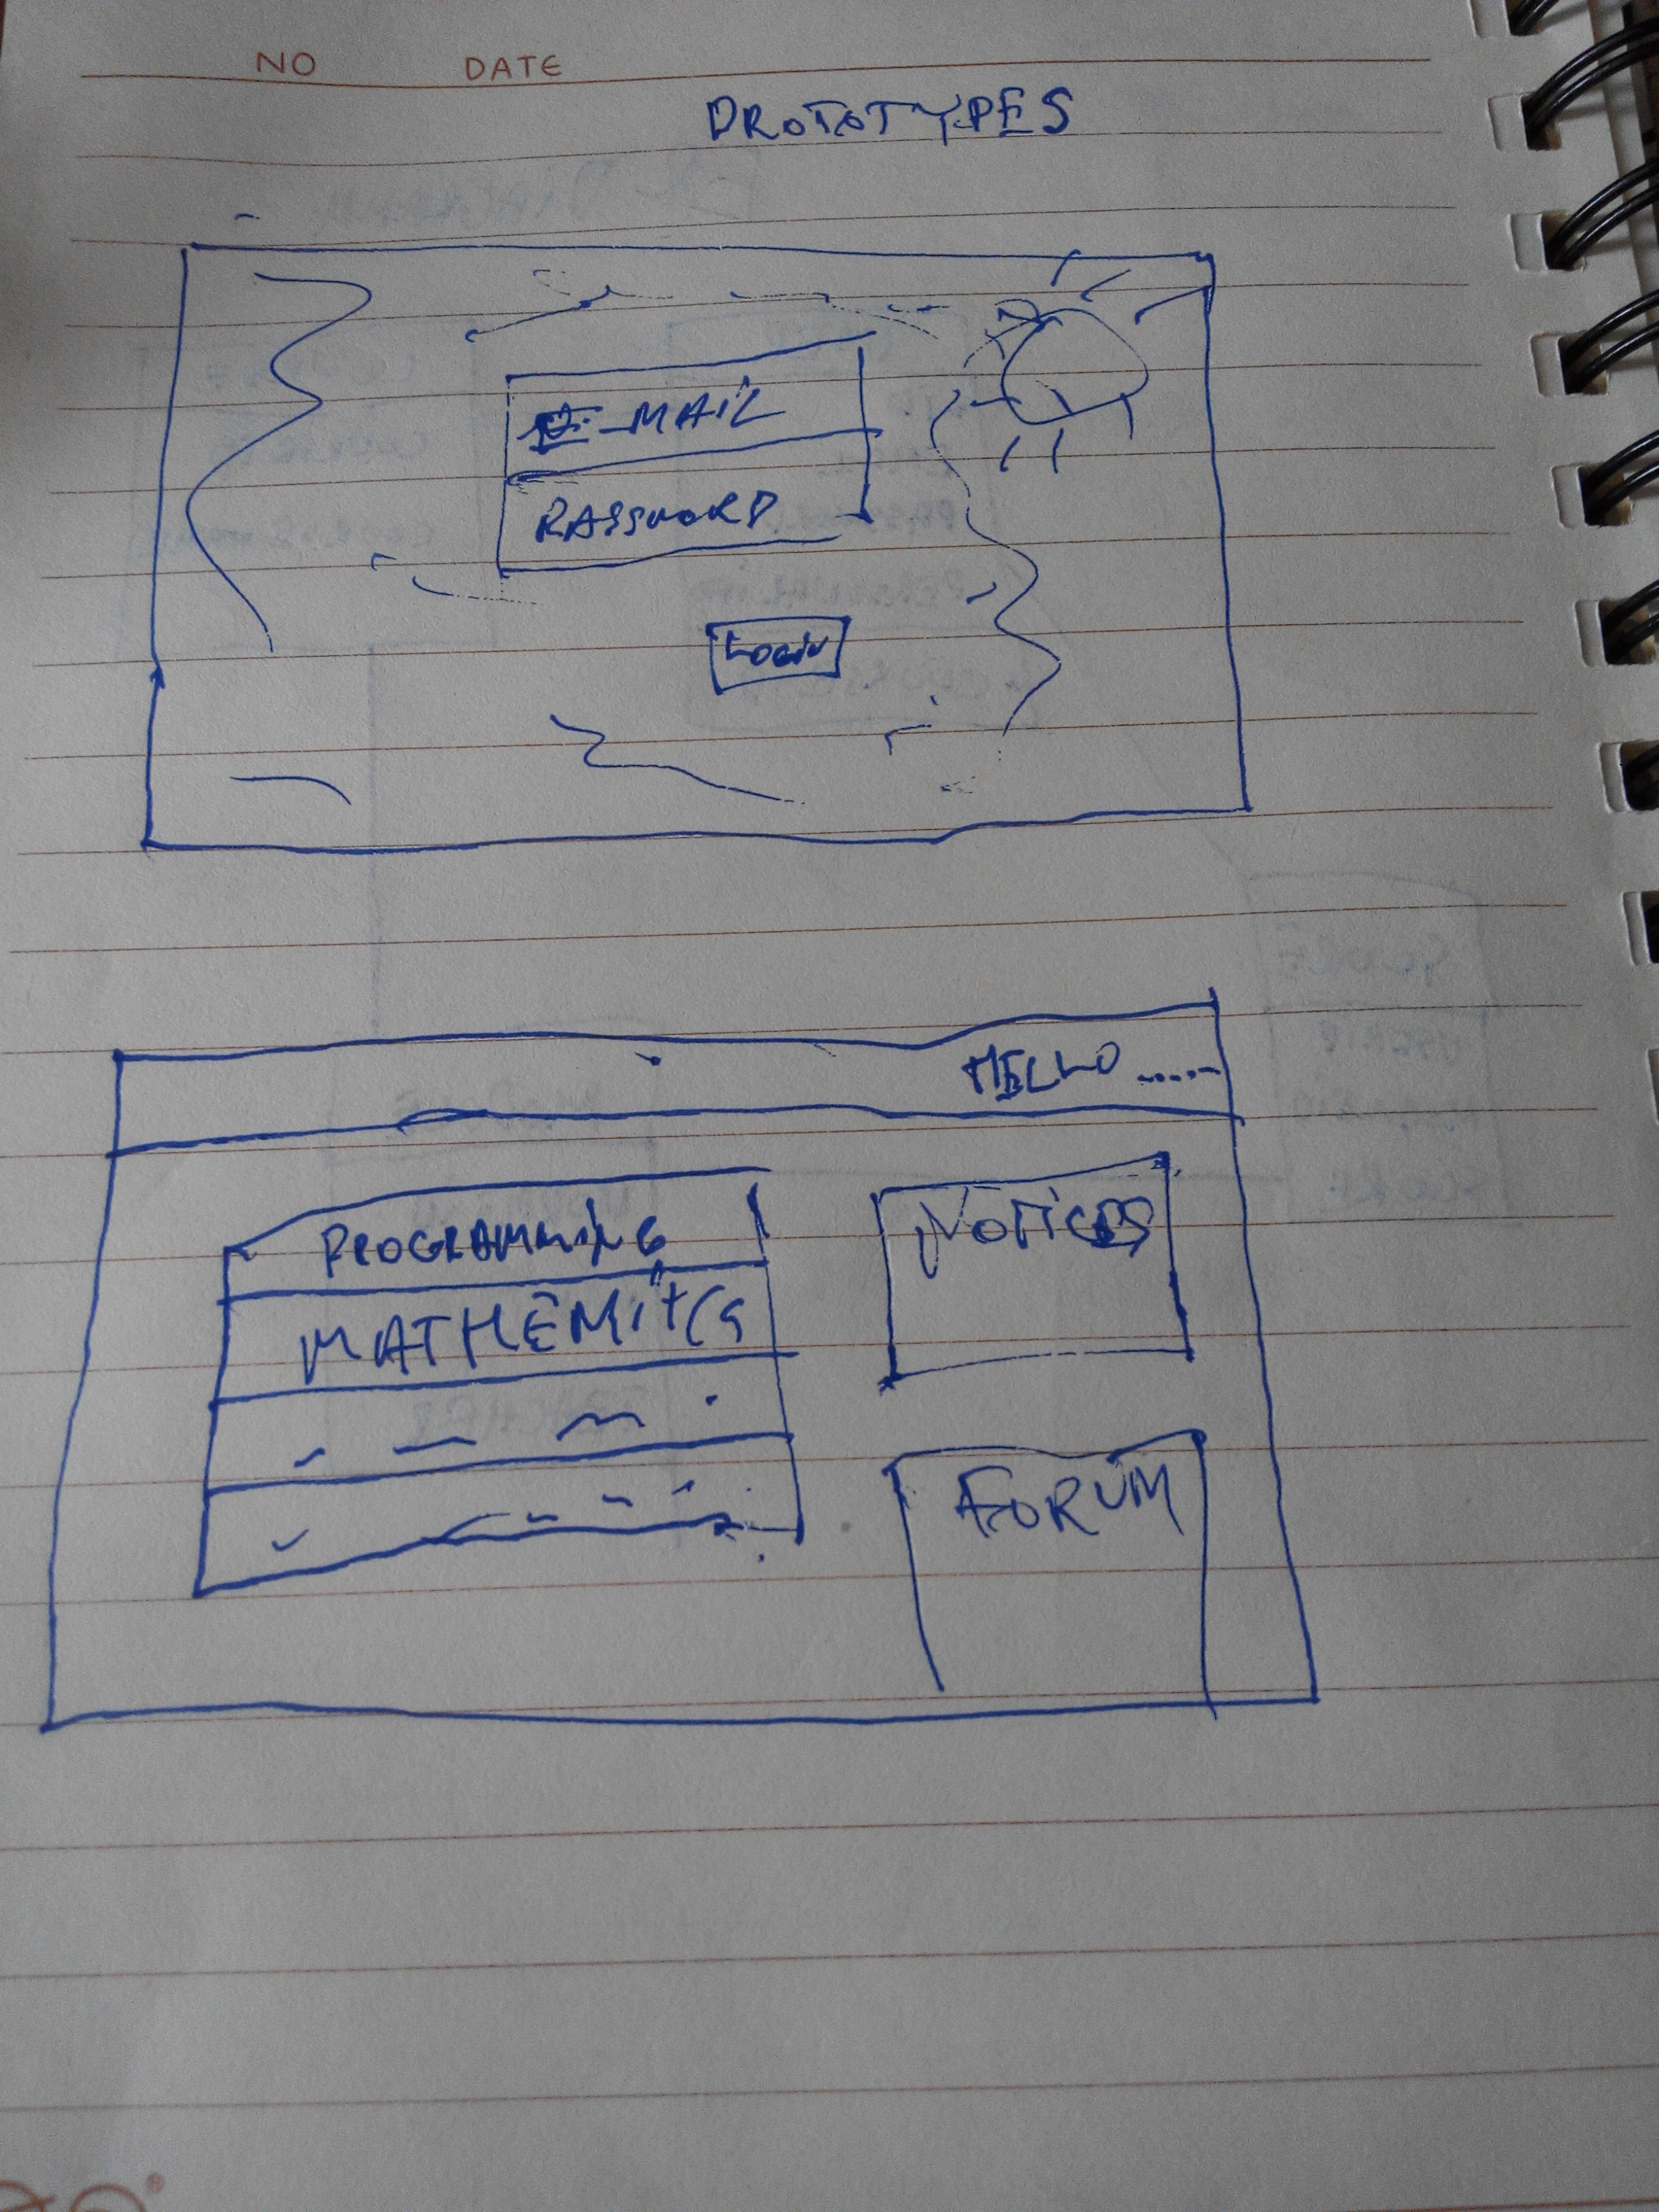 NO DATE
PROTOTYPES
E-MAIL
PASSWORD
LOGIN
HELLO .....
PROGRAMMING
MATHEMITCS
NOTICES
FORUM